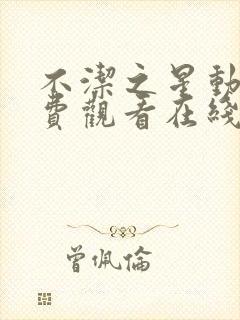 不潔之星動
費觀看在綫
曾佩倫